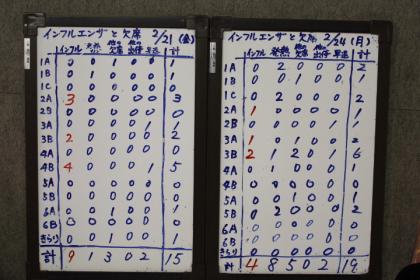 インフルエンザと欠席 2/21(金)
インフル 発熱 他の欠席 他の出停 早退 計
1A 0 0 1 0 0 1
1B 0 1 0 0 0 1
1C 0 0 0 0 0 0
2A 3 0 0 0 0 3
2B 0 0 0 0 0 0
3A 0 0 0 0 1 1
3B 2 0 0 0 0 2
4A 0 0 0 0 0 0
4B 4 0 0 0 1 5
5A 0 0 0 0 0 0
5B 0 0 0 0 0 0
6A 0 0 1 0 0 1
6B 0 0 0 0 0 0
きらり 0 0 1 0 0 1
計 9 1 3 0 2 15
インフルエンザと欠席 2/24(月)
インフル 発熱 他の欠席 他の出停 早退 計
1A 0 2 0 0 0 2
1B 0 1 0 0 0 1
1C 0 2 0 0 0 2
2A 1 0 0 0 0 1
2B 0 0 0 0 1 1
3A 1 0 1 0 0 2
3B 2 1 2 0 1 6
4A 0 0 0 0 0 0
4B 0 0 0 0 0
5A 0 0 1 0 0 1
5B 0 2 0 0 0 2
6A 0 0
6B 0 0
きらり 0 0 0 0
計 4 8 5 0 2 19